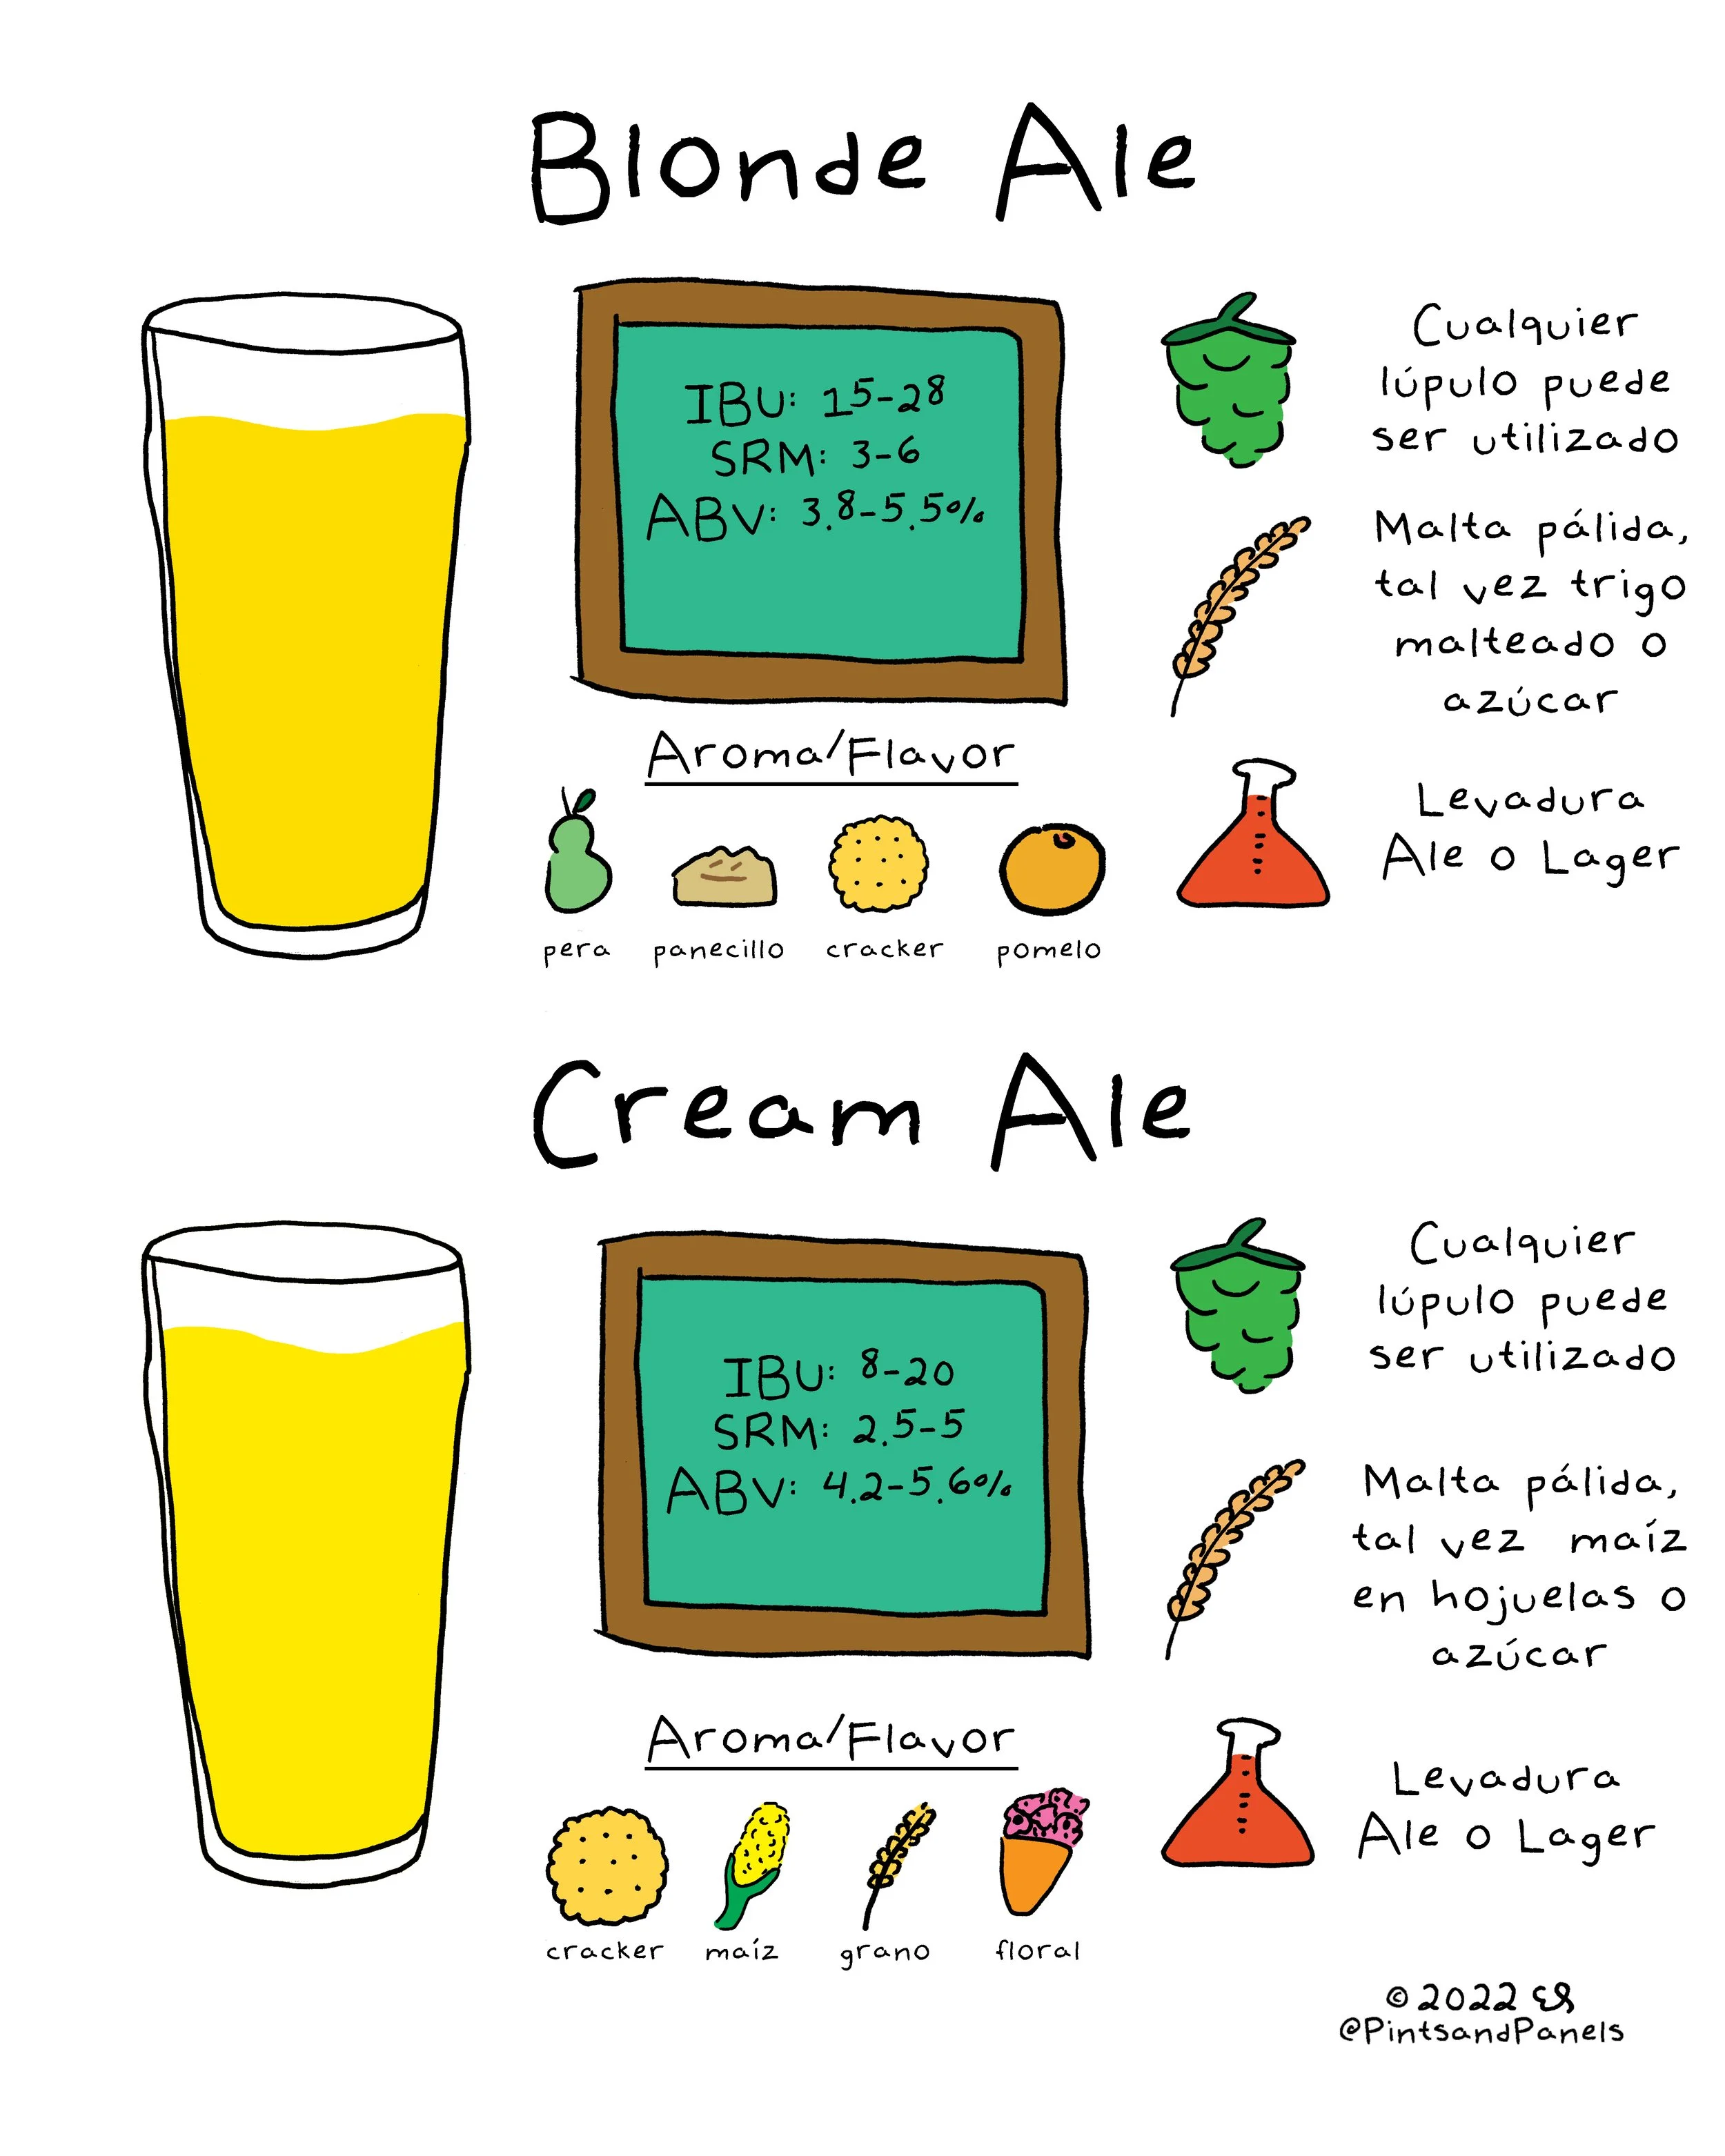 Blonde Ale
IBU: 15-28
SRM: 3-6
ABV: 3.8-5.5%
Cualquier
lúpulo puede
ser utilizado
Malta pálida,
tal vez trigo
malteado o
azúcar
Levadura
Ale o Lager
Aroma/Flavor
pera panecillo cracker pomelo
Cream Ale
IBU: 8-20
SRM: 2.5-5
ABV: 4.2-5.6%
Cualquier
lúpulo puede
ser utilizado
Malta pálida,
tal vez maíz
en hojuelas o
azúcar
Levadura
Ale o Lager
Aroma/Flavor
cracker maíz grano floral
© 2022
@PintsandPanels